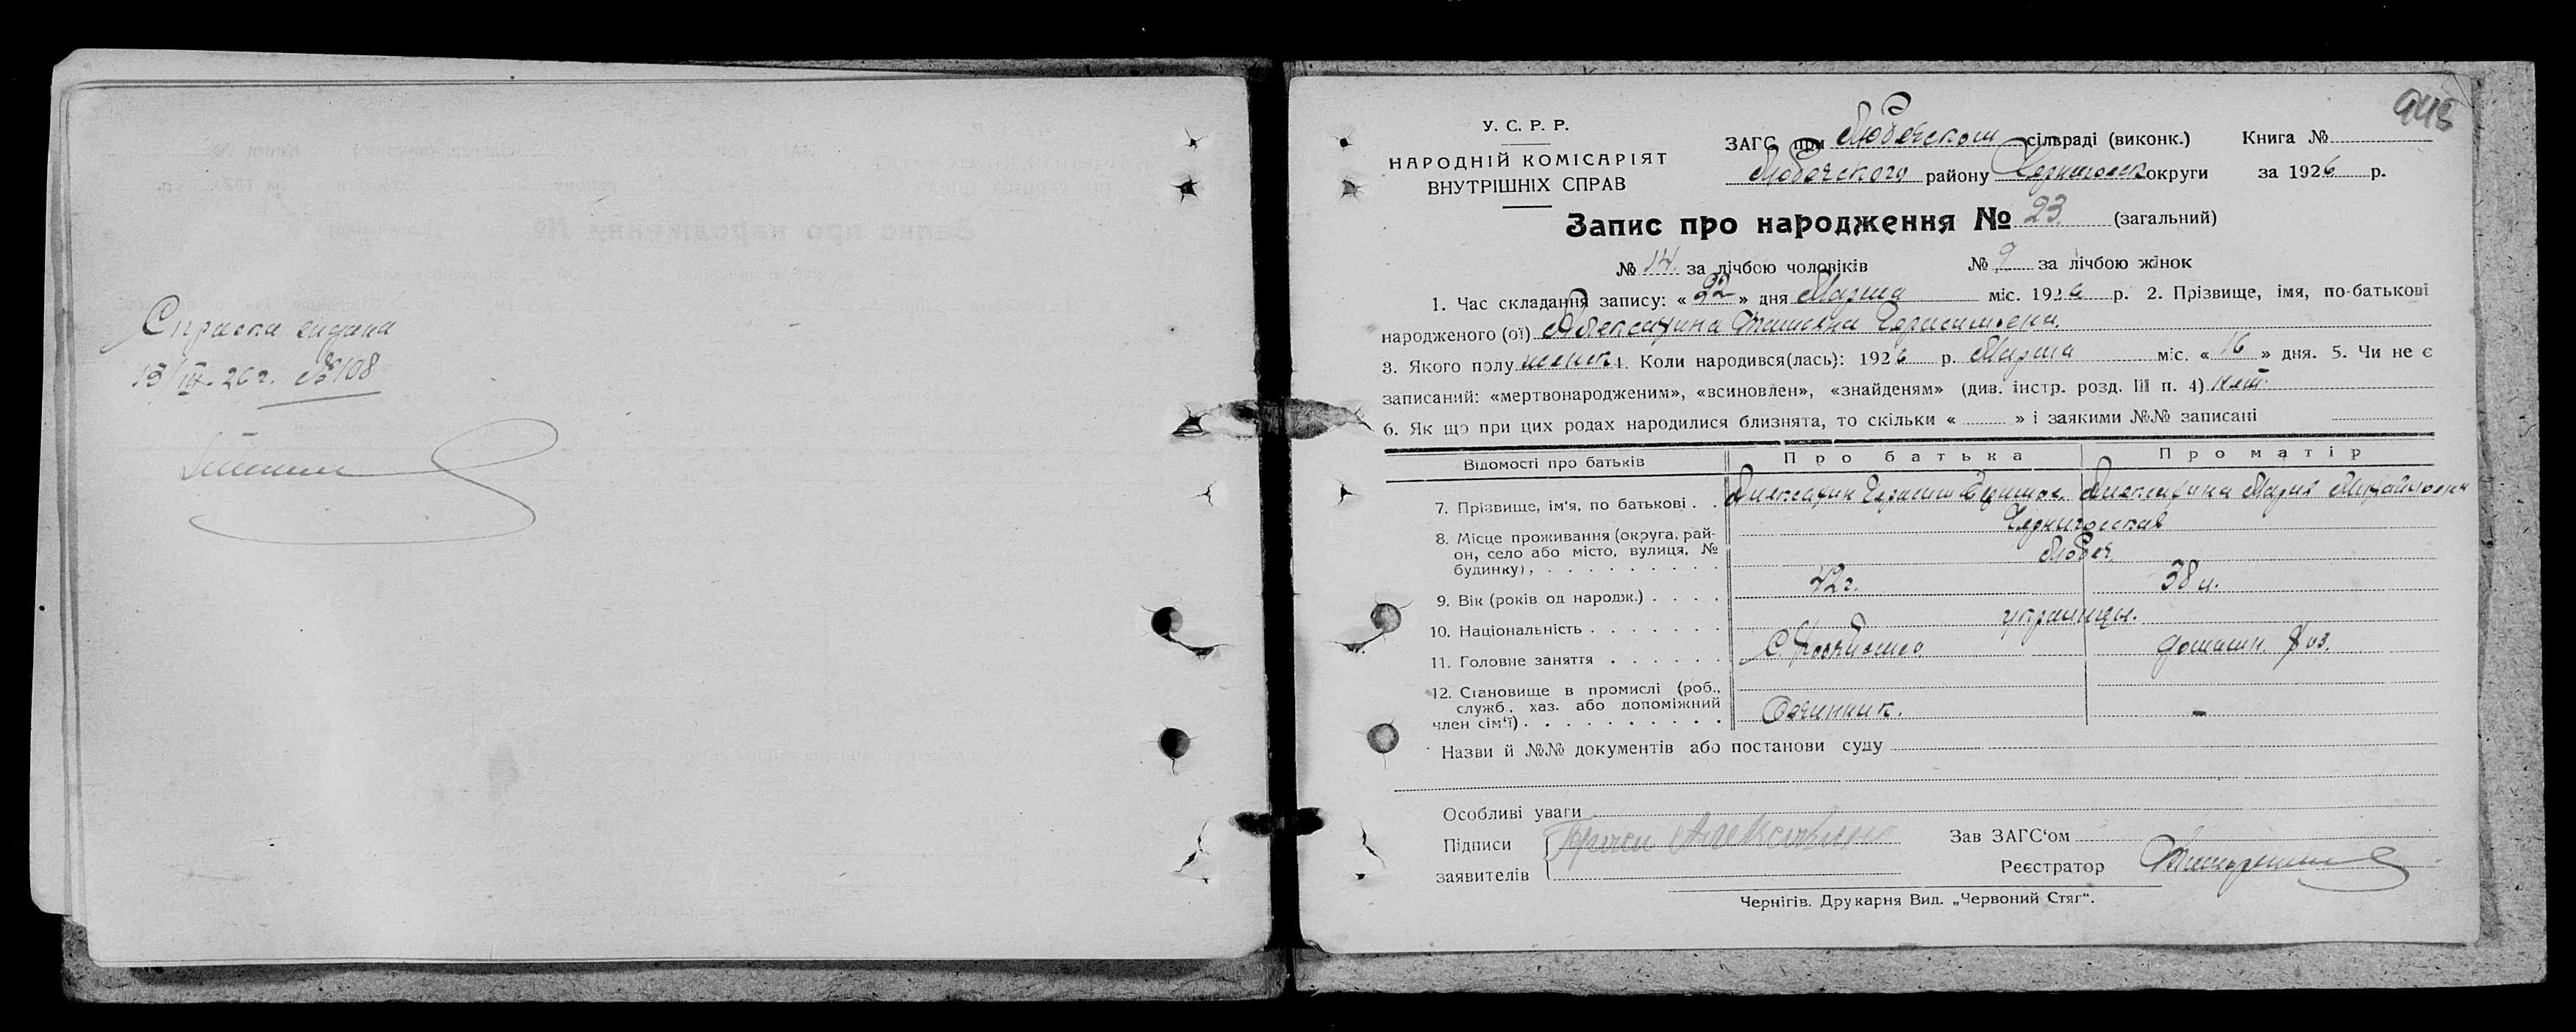 Справка выдана
13/III-26 г. №108
943
У. С. Р. Р.
НАРОДНІЙ КОМІСАРІЯТ
ВНУТРІШНІХ СПРАВ
ЗАГС при Любечском сільраді (виконк.) Книга №
Любечского району Черниговск округи за 1926 р.
Запис про народження № 23 (загальний)
№ 14 за лічбою чоловіків № 9 за лічбою жінок
1. Час складання запису: « 22 » дня Марта міс. 1926 р. 2. Прізвище, імя, по-батькові
народженого (ої) Алексахина Татьяна Герасимовна.
3. Якого полу женск 4. Коли народився(лась): 1926 р. Марта міс. « 16 » дня. 5. Чи не є
записаний: «мертвонародженим», «всиновлен», «знайденям» (див. інстр. розд. III п. 4) нет.
6. Як що при цих родах народилися близнята, то скільки « » і заякими №№ записані
Відомості про батьків Про батька Про матір
7. Прізвище, ім'я, по батькові . . Алексахин Герасим Алексахина Мария Михайловна
8. Місце проживання (округа, рай- Черниговская
он, село або місто, вулиця, № Любеч.
будинку), . . . . . . . . .
9. Вік (років од народж.) . . . . 42 г. 38 л.
10. Національність . . . . . . . украинцы.
11. Головне заняття . . . . . . С. Хозяйство домашн. хоз.
12. Становище в промислі (роб.,
служб., хаз. або допоміжний
член сім'ї) . . . . . . . . . . –
Назви й №№ документів або постанови суду
Особливі уваги
Підписи Зав ЗАГС'ом
заявителів Реєстратор
Чернігів. Друкарня Вид. „Червоний Стяг“.